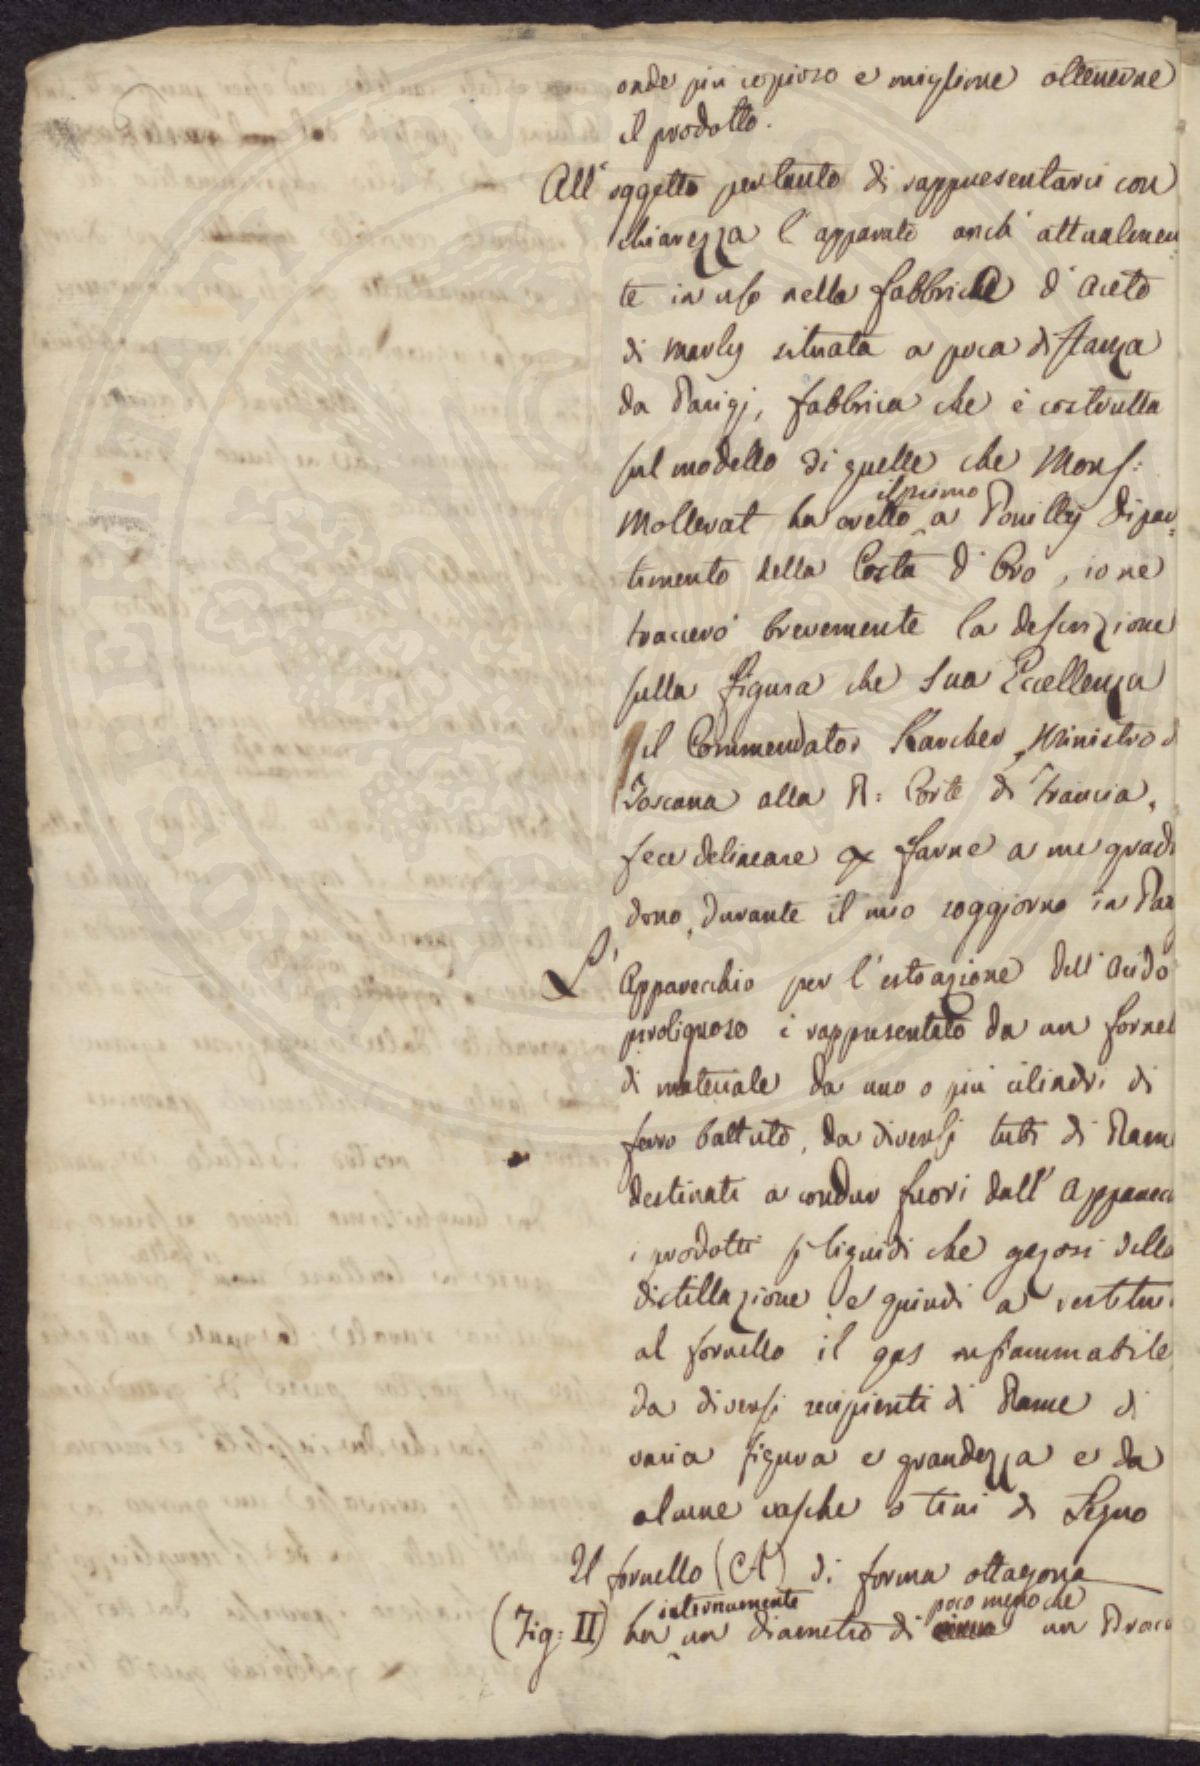 onde più copioso e migliore ottenerne
il prodotto.
All' oggetto pertanto di rappresentarvi con
chiarezza l'apparato anch' attualmen
te in uso nella fabbrica d'aceto
di Marly situata a poca distanza
da Parigi, fabbrica che è costrutta
sul modello di quelle che Mons:
il primo
Mollerat ha eretto a Pouilly Dipar
timento della Costa d'Oro, io ne
traccerò brevemente la descrizione
sulla figura che Sua Eccellenza
il Commendator Karcher Ministro d
Toscana alla R: Corte di Francia,
fece delineare farne a me grad
dono, durante il mio soggiorno in Par
L' Apparecchio per l'estrazione dell' Acido
piroligneo è rappresentato da un fornel
di materiale da uno o più cilindri di
ferro battuto, da diversi tubi di Ram
destinati a condur fuori dall' Apparec
i prodotti sì liquidi che gazosi della
distillazione e quindi a restitui
al fornello il gas infiammabile
da diversi recipienti di Rame di
varia figura e grandezza e da
alcune vasche o tini di Legno
Il fornello (A) di forma ottagona
internamente poco meno che
(Fig: II) ha un diametro di un Bracc